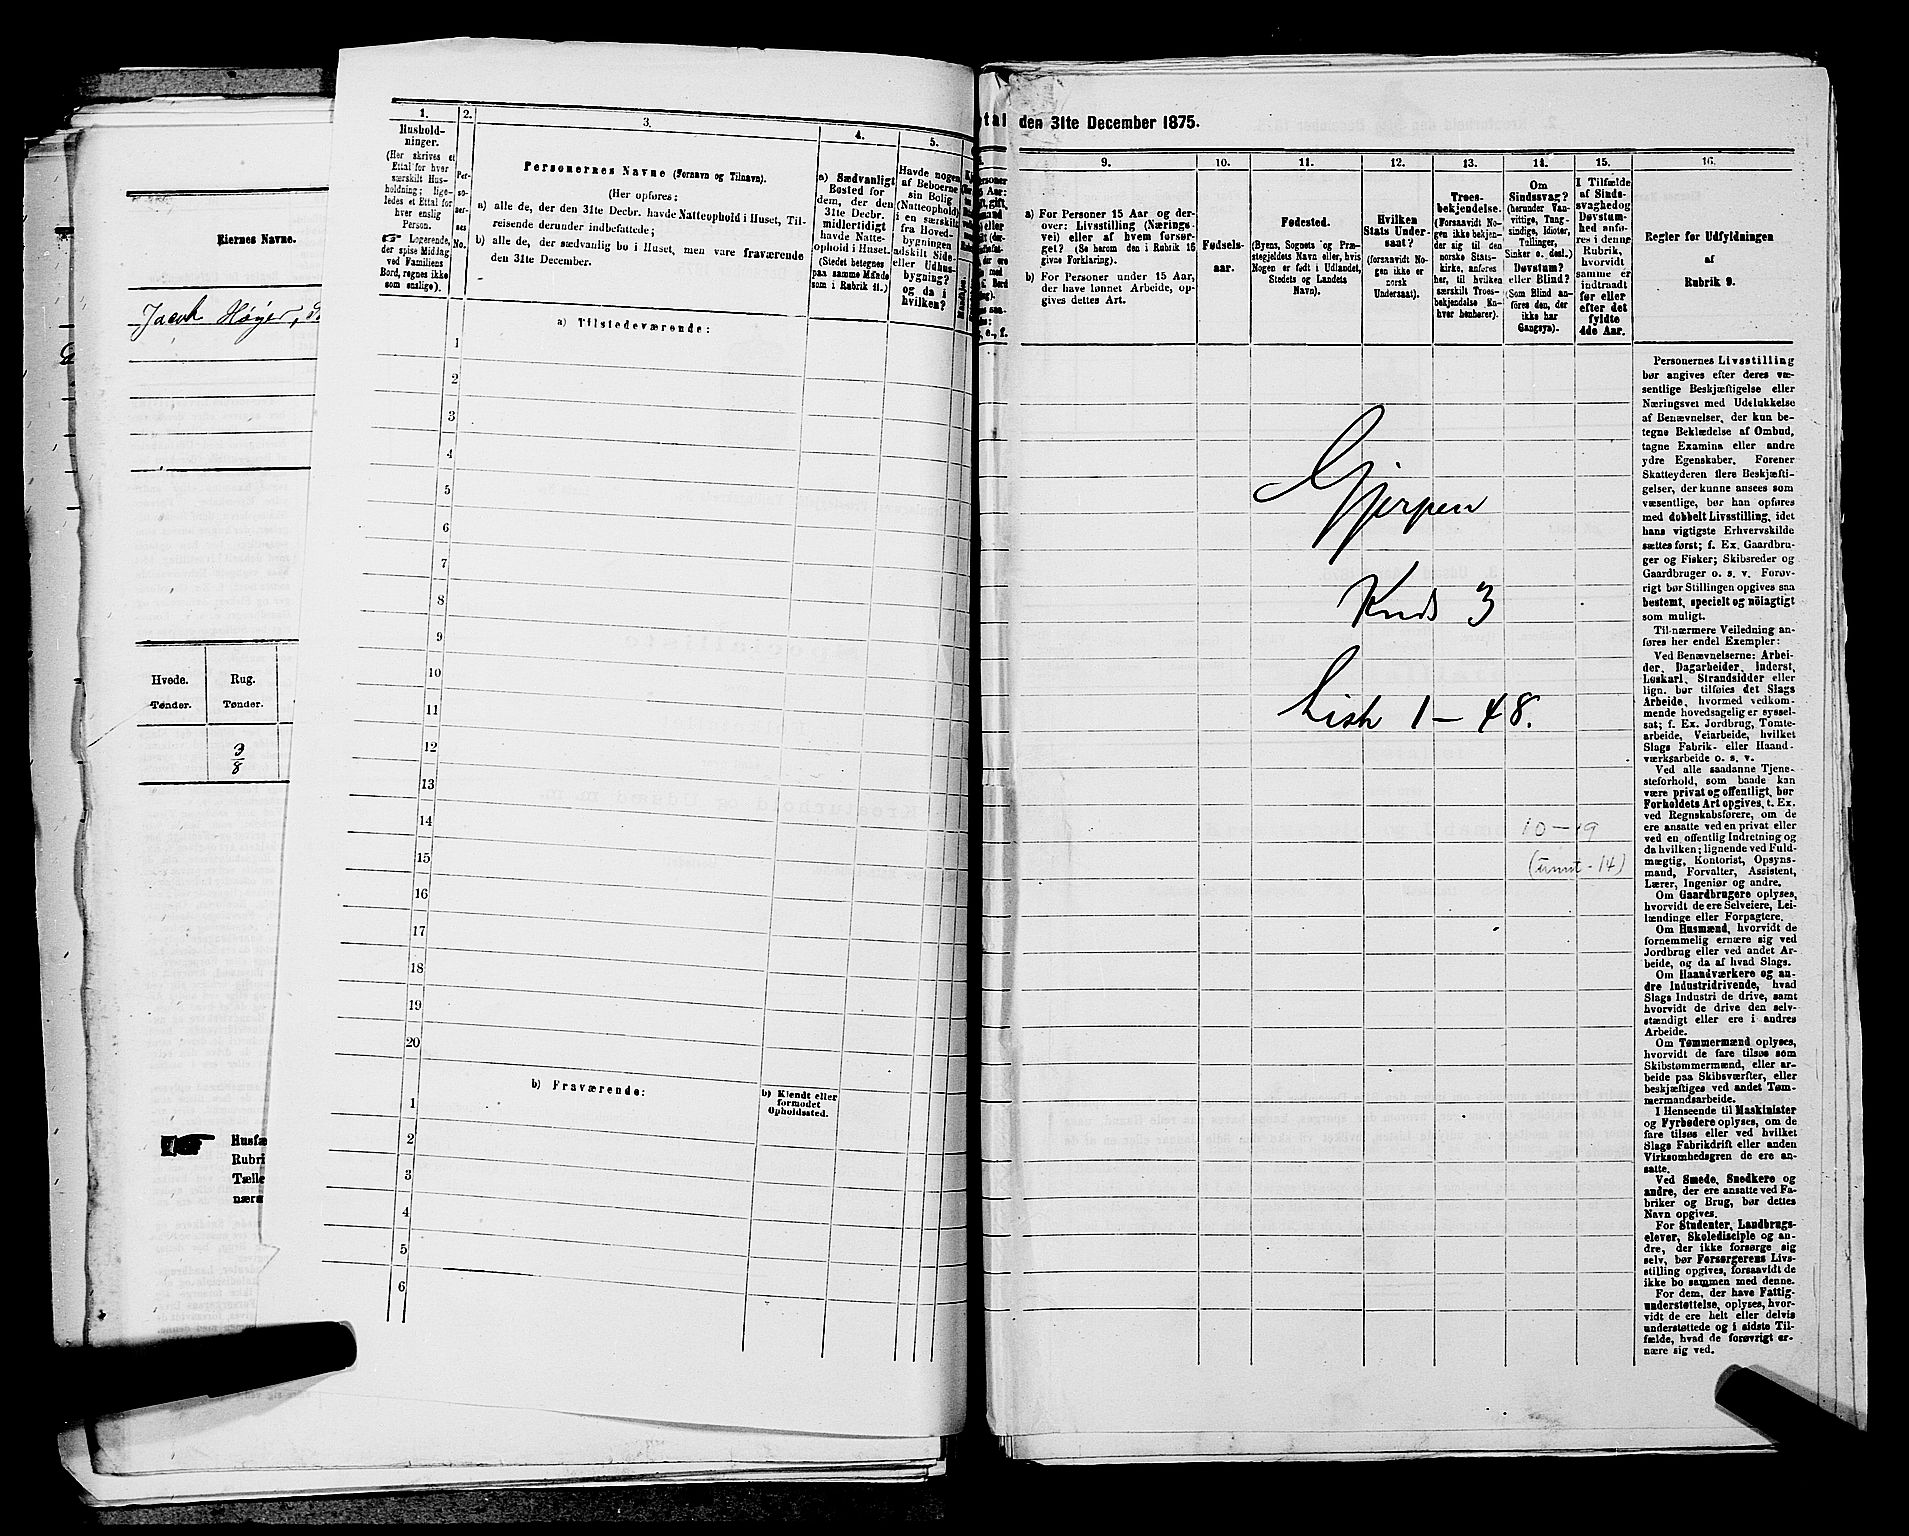 Eiernes Navne.
Jacob Høyer,
Hvede.
Tønder.
Rug.
Tønder.
3
8
Husfæ
Rubri
Tælle
næra
1.
Hushold-
ninger.
(Her skrives et
Ettal for hver
særskilt Hus-
holdning; lige-
ledes et Ettal for
hver enslig
Person.
☞ Logerende,
der spise Middag
ved Familiens
Bord, regnes ikke
som enslige).
2.
Per-
so-
ner-
nes
No.
3.
Personernes Navne (Fornavn og Tilnavn).
(Her opføres:
a) alle de, der den 31te Decbr. havde Natteophold i Huset, Til-
reisende derunder indbefattede;
b) alle de, der sædvanlig bo i Huset, men vare fraværende
den 31te December.
4.
a) Sædvanligt
Bosted for
dem, der den
31te Decbr.
midlertidigt
havde Natte-
ophold i Huset.
(Stedet betegnes
paa samme Maade
som i Rubrik 11.)
5.
Havde nogen
af Beboerne
sin Bolig
(Natteophold)
i en særskilt
fra Hoved-
bygningen
adskilt Side-
eller Udhus-
bygning?
og da i
hvilken?
a) Tilstedeværende:
1
2
3
4
5
6
7
8
9
10
11
12
13
14
15
16
17
18
19
20
b) Fraværende:
b) Kjendt eller
formodet
Opholdssted.
1
2
3
4
5
6
tal den 31te December 1875.
9.
a) For Personer 15 Aar og der-
over: Livsstilling (Nærings-
vei) eller af hvem forsør-
get? (Se herom den i Rubrik 16
givne Forklaring).
b) For Personer under 15 Aar,
der have lønnet Arbeide, op-
gives dettes Art.
10.
Fødsels-
aar.
11.
Fødested.
(Byens, Sognets og Præ-
stegjeldets Navn eller, hvis
Nogen er født i Udlandet,
Stedets og Landets
Navn).
12.
Hvilken
Stats Under-
saat?
(forsaavidt No-
gen ikke er
norsk
Undersaat).
13.
Troes-
bekjendelse.
(Forsaavidt No-
gen ikke bekjen-
der sig til den
norske Stats-
kirke, anføres
her, til hvilken
særskilt Troes-
bekjendelse En-
hver henhører).
14.
Om
Sindssvag?
(herunder Van-
vittige, Tung-
sindige, Idioter,
Tullinger,
Sinker o. desl.)
Døvstum?
eller Blind?
(Som Blind an-
føres den, der
ikke har
Gangsyn).
15.
I Tilfælde
af Sinds-
svaghed og
Døvstum-
hed anfø-
res i denne
Rubrik,
hvorvidt
samme er
indtraadt
før eller
efter det
fyldte
4de Aar.
16.
Regler for Udfyldningen
af
Rubrik 9.
Personernes Livsstilling
bør angives efter deres væ-
sentlige Beskjæftigelse eller
Næringsvei med Udelukkelse
af Benævnelser, der kun be-
tegne Beklædelse af Ombud,
tagne Examina eller andre
ydre Egenskaber. Forener
Skatteyderen flere Beskjæfti-
gelser, der kunne ansees som
væsentlige, bør han opføres
med dobbelt Livsstilling, idet
hans vigtigste Erhvervskilde
sættes først; f. Ex. Gaardbru-
ger og Fisker; Skibsreder og
Gaardbruger o. s. v. Forøv-
rigt bør Stillingen opgives saa
bestemt, specielt og nöiagtigt
som muligt.
Til nærmere Veiledning an-
føres her endel Exempler:
Ved Benævnelserne: Arbei-
der, Dagarbeider, Inderst,
Løskarl, Strandsidder eller
lign. bør tilføies det Slags
Arbeide, hvormed vedkom-
mende hovedsagelig er syssel-
sat; f. Ex. Jordbrug, Tomte-
arbeide, Veiarbeide, hvilket
Slags Fabrik- eller Haand-
værksarbeide o. s. v.
Ved alle saadanne Tjene-
steforhold, som baade kan
være privat og offentligt, bør
Forholdets Art opgives, t. Ex.
ved Regnskabsførere, om de
ere ansatte ved en privat eller
ved en offentlig Indretning og
da hvilken; lignende ved Fuld-
mægtig, Kontorist, Opsyns-
mand, Forvalter, Assistent,
Lærer, Ingeniør og andre.
Om Gaardbrugere oplyses,
hvorvidt de ere Selveiere, Lei-
lændinge eller Forpagtere.
Om Husmænd, hvorvidt de
fornemmelig ernære sig ved
Jordbrug eller ved andet Ar-
beide, og da af hvad Slags.
Om Haandværkere og an-
dre Industridrivende, hvad
Slags Industri de drive, samt
hvorvidt de drive den selv-
stændigt eller ere i andres
Arbeide.
Om Tømmermænd oplyses,
hvorvidt de fare tilsøs som
Skibstømmermænd, eller ar-
beide paa Skibsværfter, eller
beskjæftiges ved andet Tøm-
mermandsarbeide.
I Henseende til Maskinister
og Fyrbødere oplyses, om de
fare tilsøs eller ved hvilket
Slags Fabrikdrift eller anden
Virksomhedsgren de ere an-
satte.
Ved Smede, Snedkere og
andre, der ere ansatte ved Fa-
briker og Brug, bør dettes
Navn opgives.
For Studenter, Landbrugs-
elever, Skoledisciple og an-
dre, der ikke forsørge sig
selv, bør Forsørgerens Livs-
stilling opgives, forsaavidt de
ikke bo sammen med denne.
For dem, der have Fattig-
understøttelse, oplyses, hvor-
vidt de ere helt eller delvis
understøttede og i sidste Til-
fælde, hvad de forøvrigt er-
nære sig ved.
Gjerpen
Kreds 3
Liste 1 – 48.
10 – 19